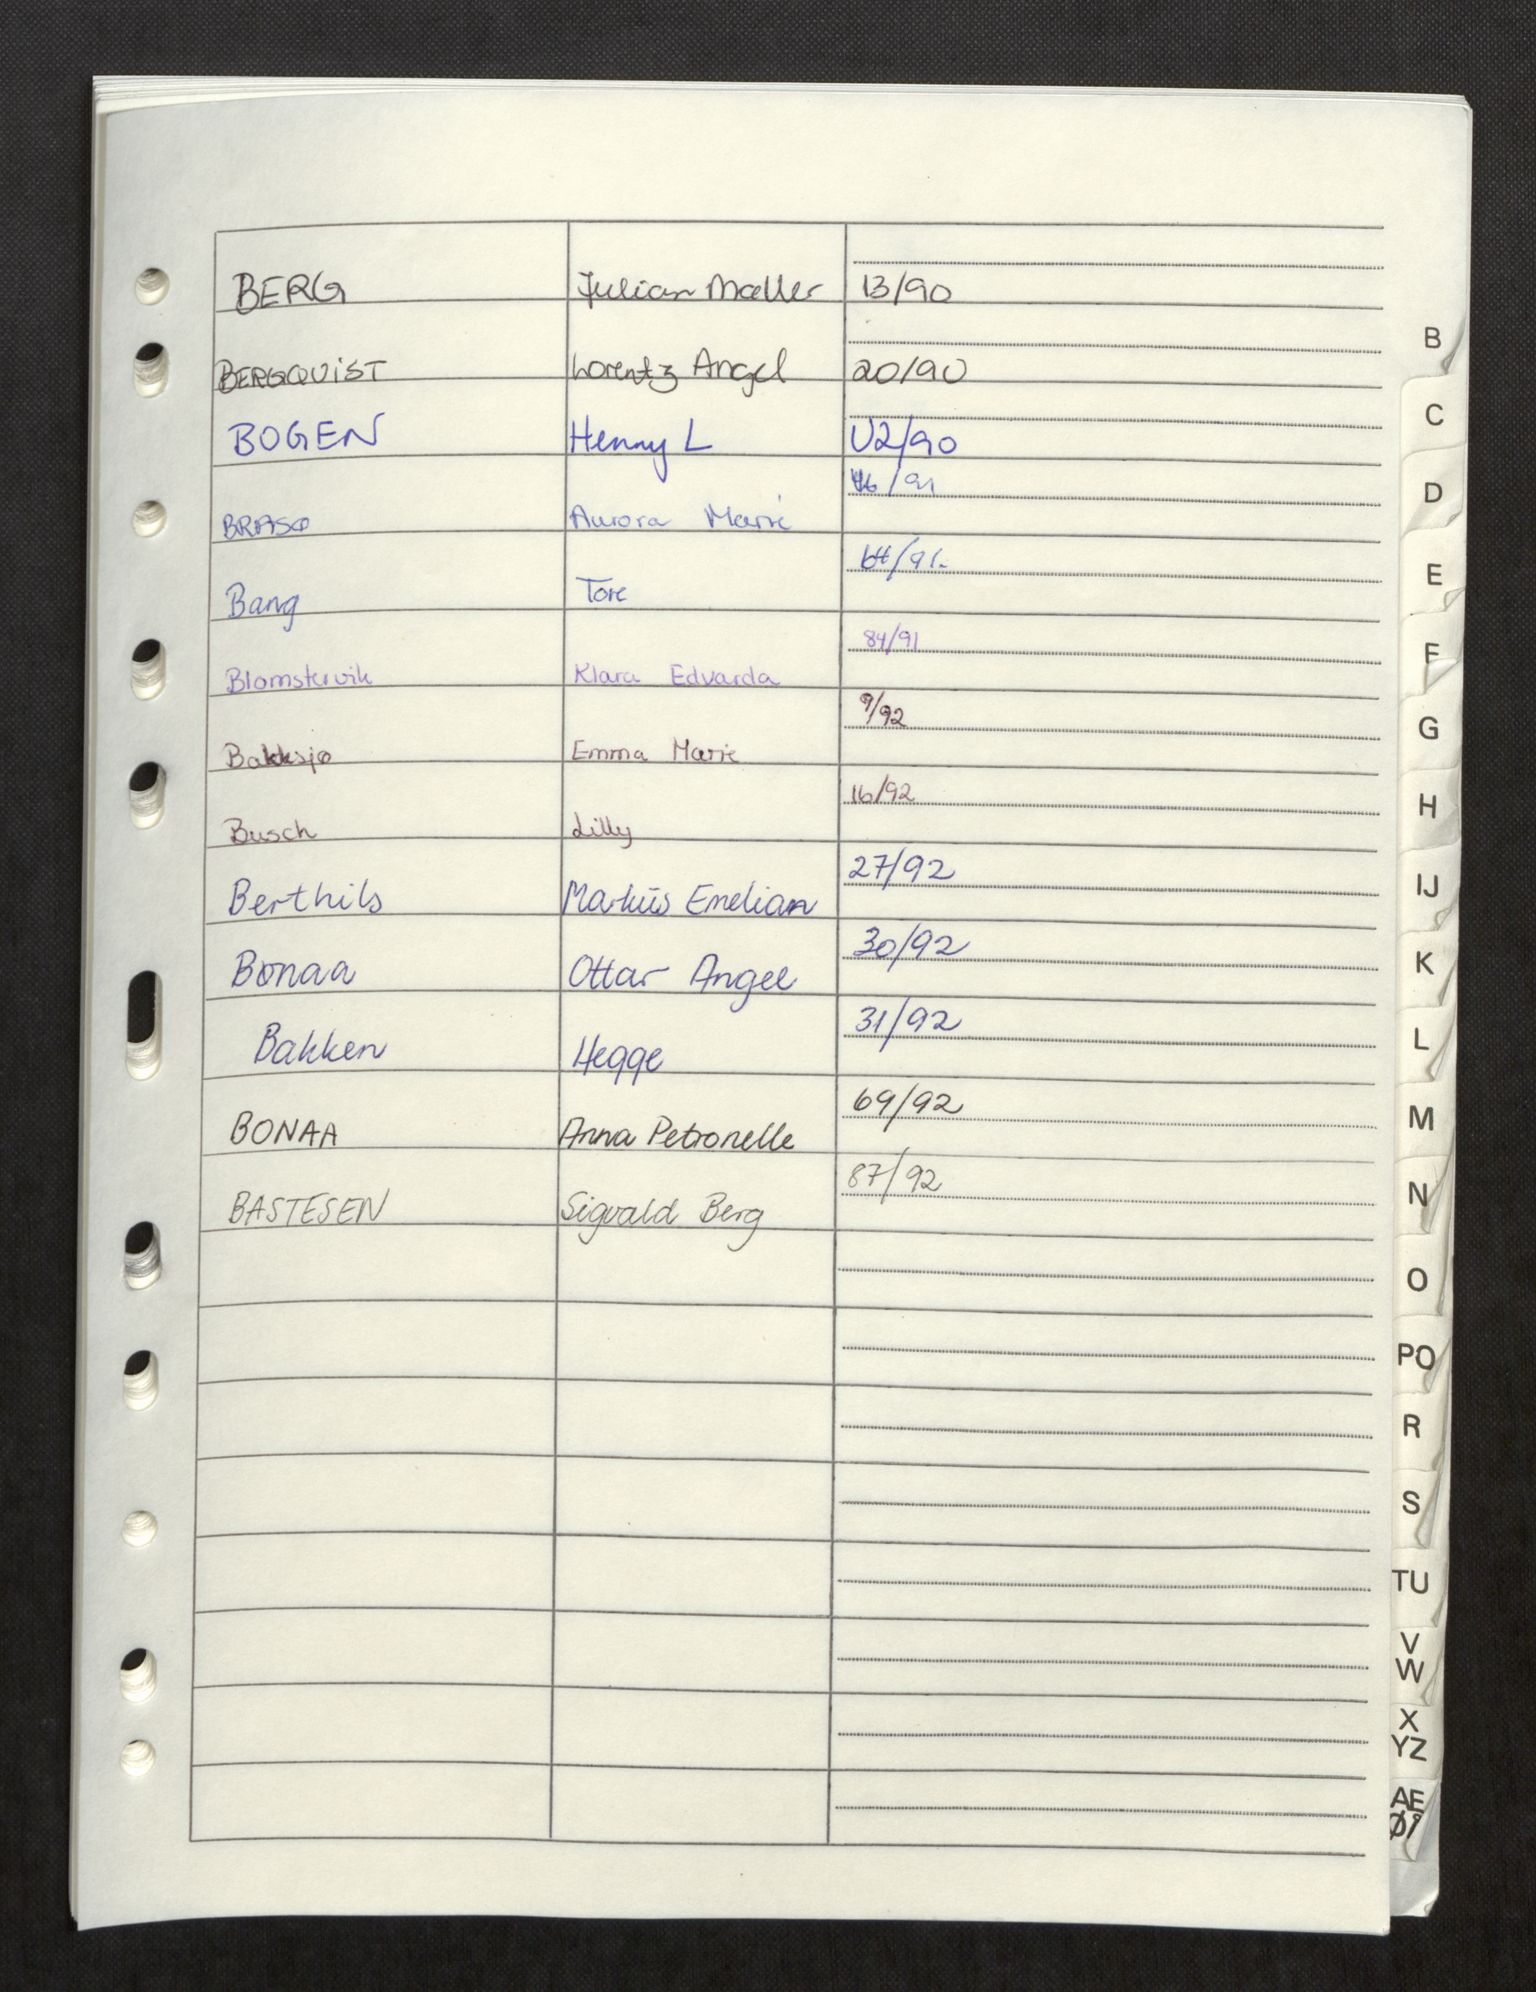 BERG Julian Møller 13/90
BERGQUIST Lorentz Angel 20/90
BOGEN Henny L U2/90
BRASØ Aurora Marie /91
Bang Tore 64/91.
Blomstervik Klara Edvarda 84/91
Bakksjø Emma Marie 9/92
Busch Lilly 16/92
Berthils Markus Emelian 27/92
Bonaa Ottar Angel 30/92
Bakken Hegge 31/92
BONAA Anna Petronelle 69/92
BASTESEN Sigvald Berg 87/92
B
C
D
E
F
G
H
IJ
K
L
M
N
O
PQ
R
S
TU
V
W
X
YZ
AE
ØÅ